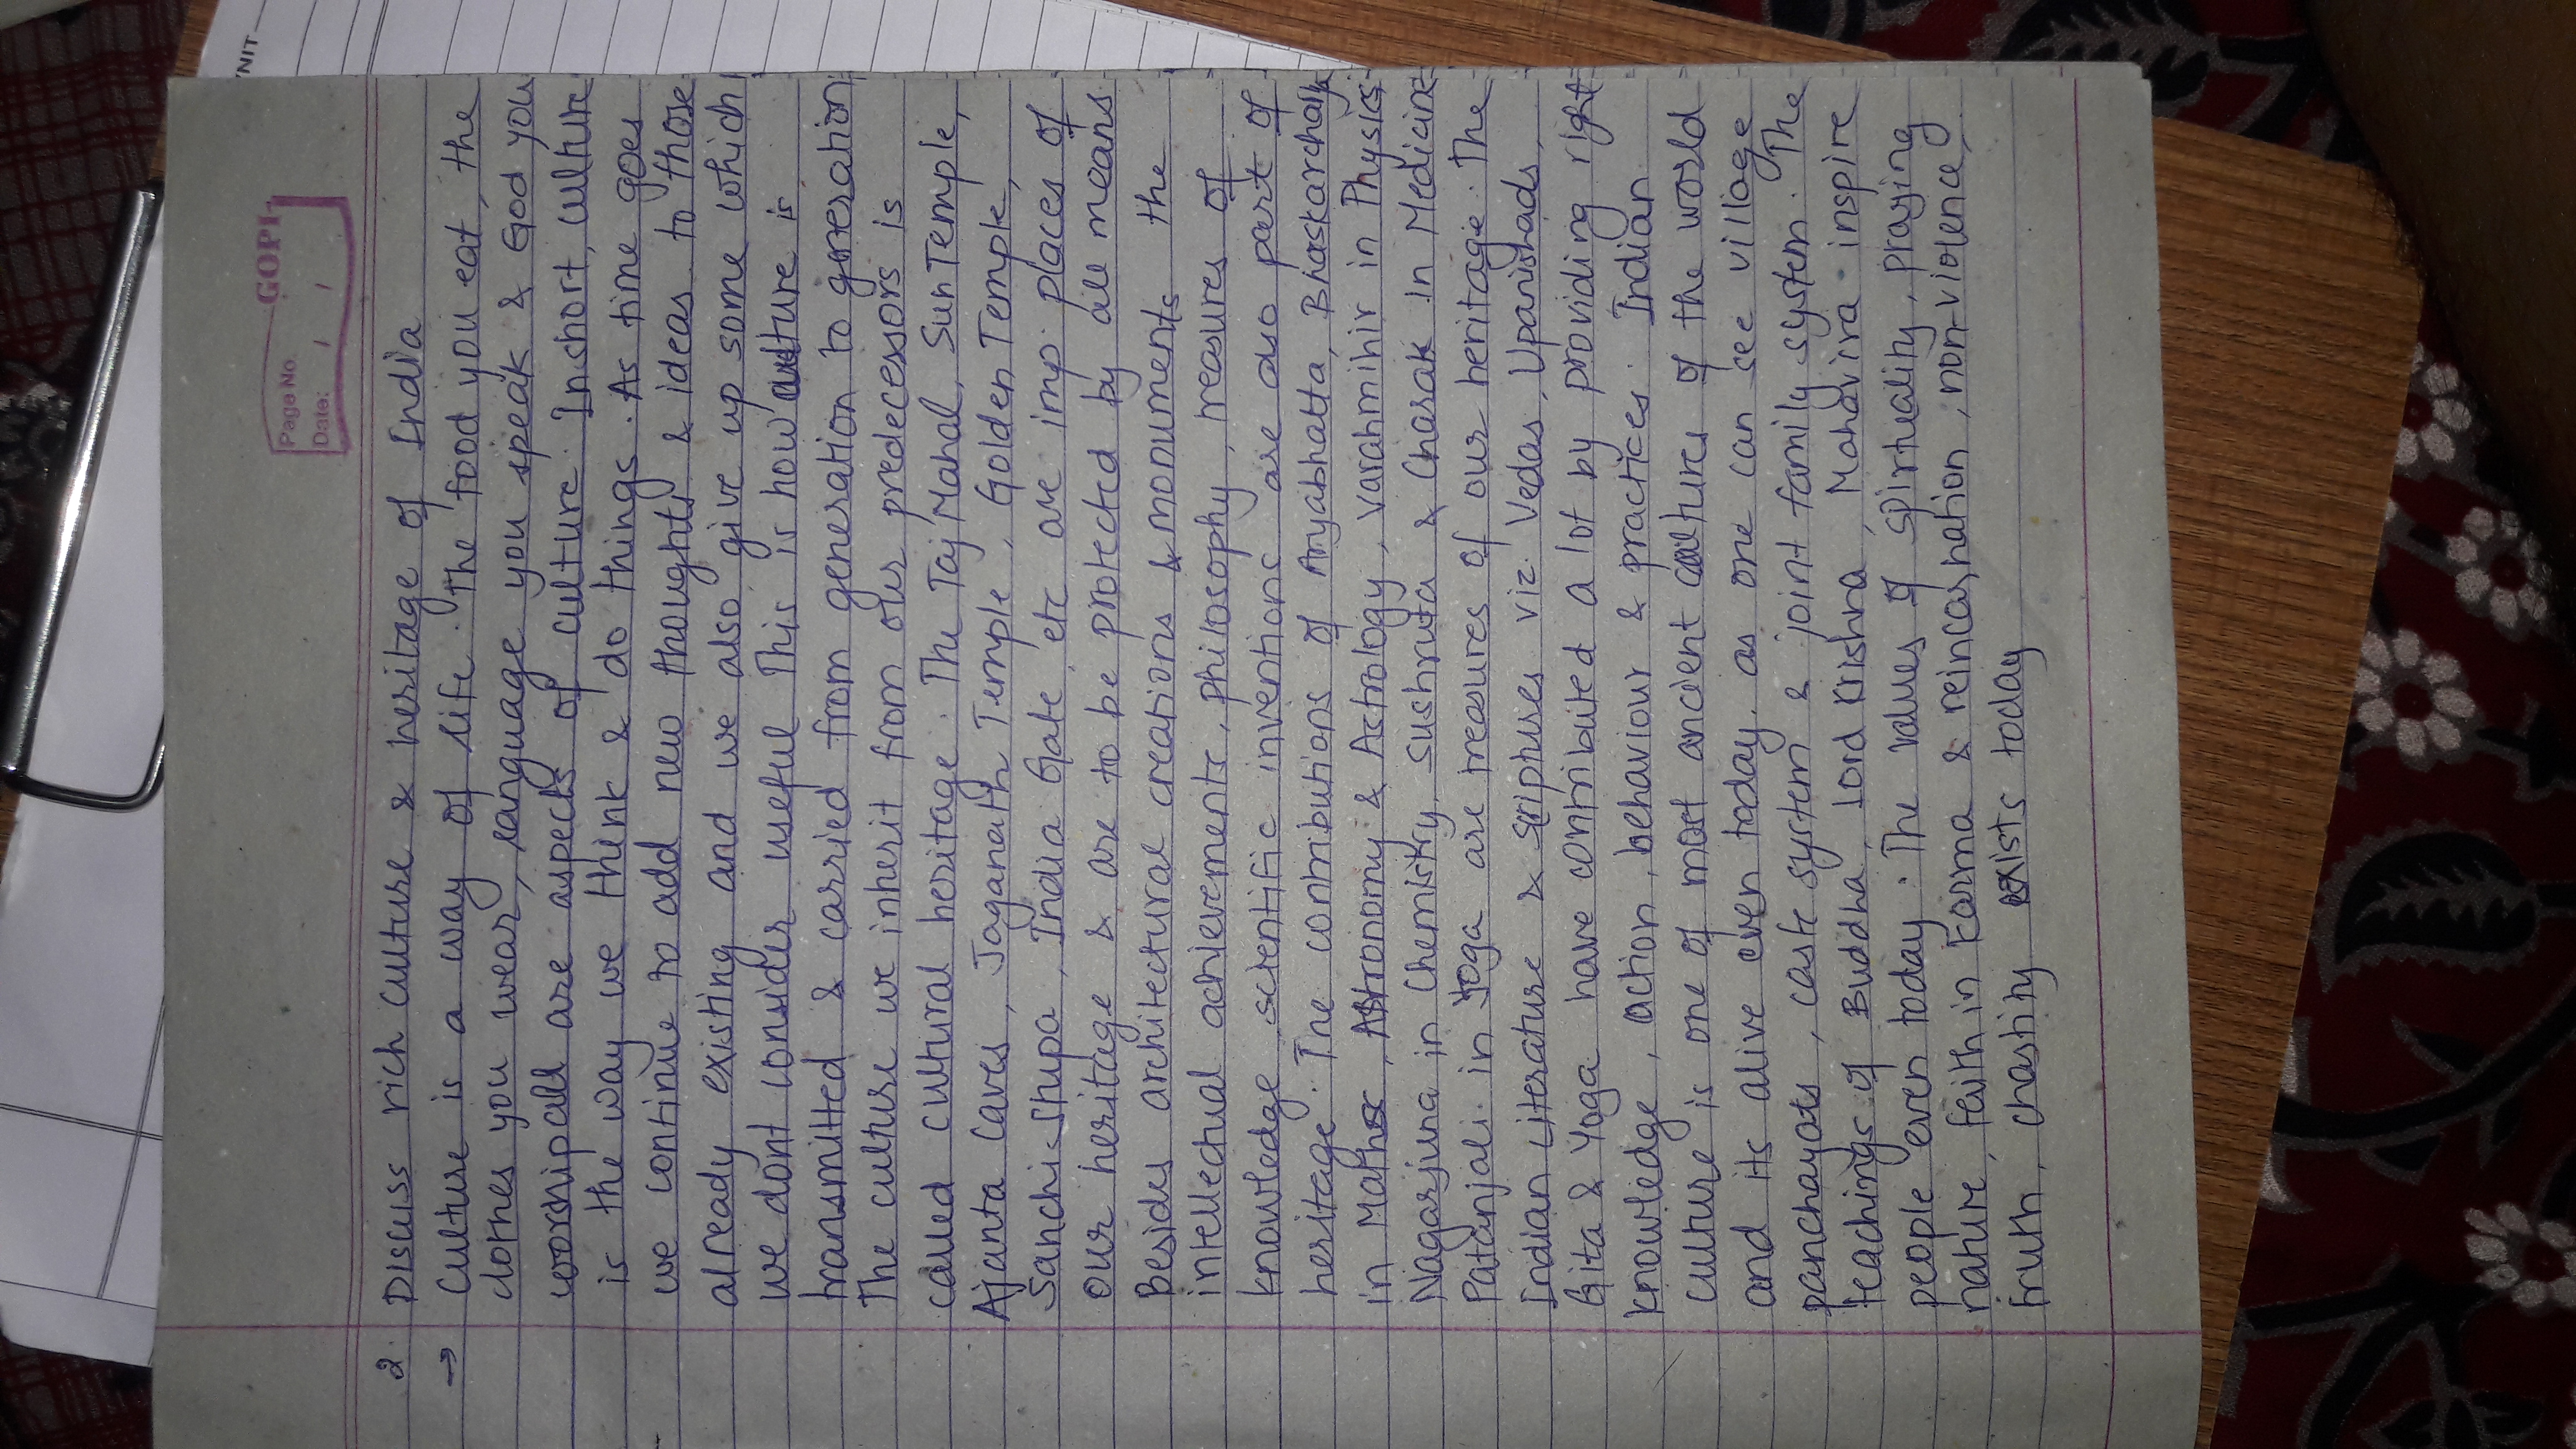 GOPI
Page No.
Date: / /
YNIT
2. Discuss rich culture & heritage of India
→ Culture is a way of life. The food you eat, the
clothes you wear, language you speak & God you
worship all are aspects of culture. In short, culture
is the way we think & do things. As time goes
we continue to add new thoughts & ideas to those
already existing and we also give up some which
we dont consider useful This is how culture is
transmitted & carried from generation to generation.
The culture we inherit from our predecessors is
called cultural heritage. The Taj Mahal, Sun Temple,
Ajanta Caves, Jaganath Temple, Golden Temple,
Sanchi-Stupa, India Gate, etc are imp. places of
our heritage & are to be protected by all means.
Besides architectural creations & monuments the
intellectual achievements, philosophy, treasures of
knowledge, scientific inventions are also part of
heritage. The contributions of Aryabhatta, Bhaskarcharya
in Maths, Astronomy & Astrology, Varahmihir in Physics,
Nagarjuna in Chemistry, Sushruta & Charak in Medicine
Patanjali in Yoga are treasures of our heritage. The
Indian Literature & Scriptures viz. Vedas, Upanishads,
Gita & Yoga have contributed a lot by providing right
knowledge, action, behaviour & practices. Indian
culture is one of most ancient cultures of the world
and its alive even today. as one can see village
panchayats, caste system & joint family system. The
teachings of Buddha, Lord Krishna, Mahavira inspire
people even today. The values of spirtuality, praying
nature, faith in Karma & reincarnation, non-violence,
truth, chastity exists today